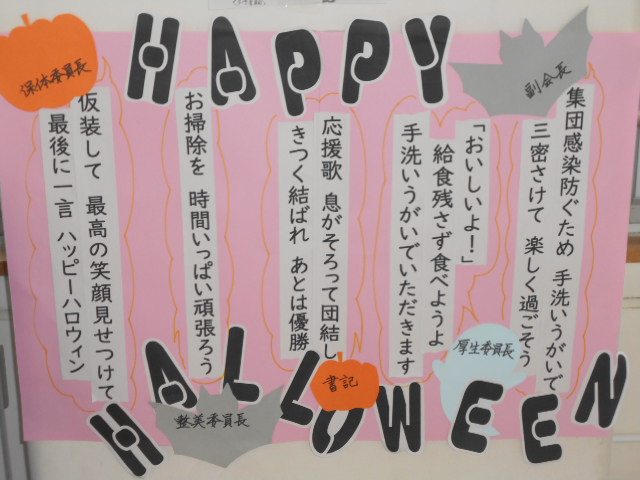 HAPPY
副会長
集団感染防ぐため 手洗いうがいで
三密さけて 楽しく過ごそう
厚生委員長
「おいしいよ!」
給食残さず食べようよ
手洗いうがいでいただきます
書記
応援歌 息がそろって団結し
きつく結ばれ あとは優勝
整美委員長
お掃除を 時間いっぱい頑張ろう
保体委員長
仮装して 最高の笑顔見せつけて
最後に一言 ハッピーハロウィン
HALLOWEEN